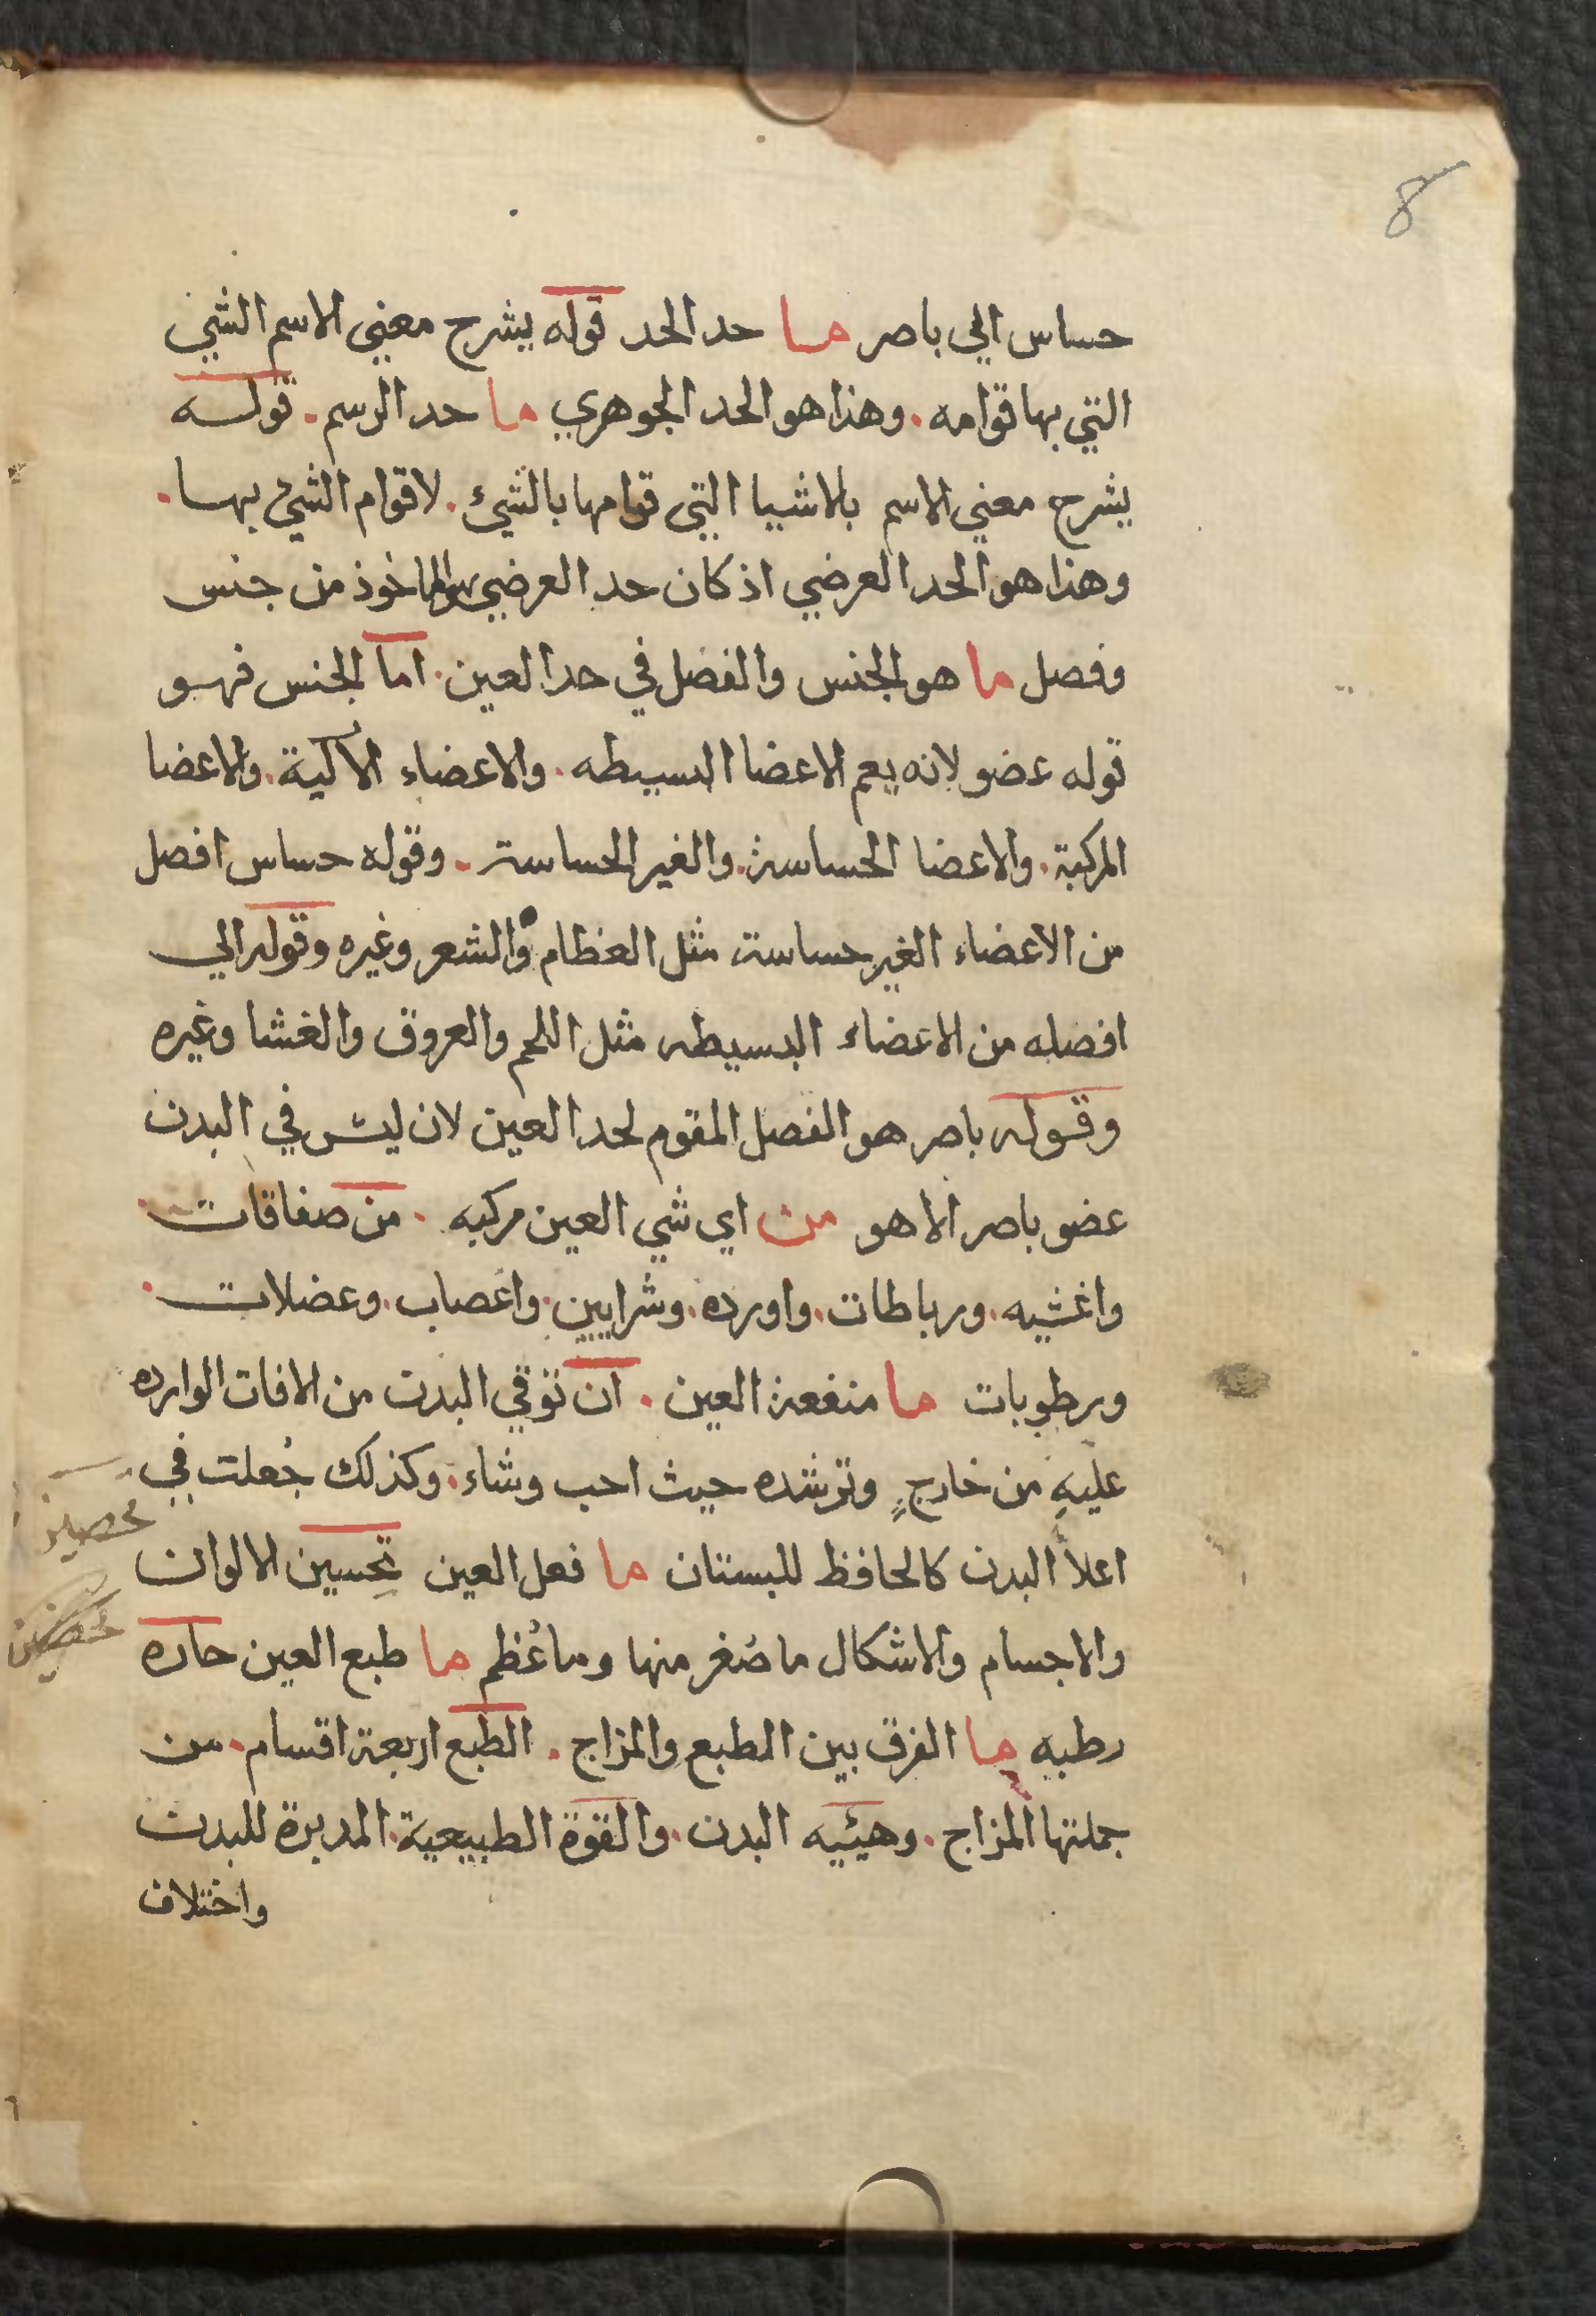 8
حساس الي باصر ما حد الحد قوله يشرح معني الاسم الشي
التي بها قوامه. وهذا هو الحد الجوهري ما حد الرسم. قوله
يشرح معني الاسم بالاشيا التي قوامها بالشيء. لا قوام الشيء بها.
وهذا هو الحد العرضي اذ كان حد العرضي هو الماخوذ من جنس
وفصل ما هو الجنس والفصل في حد العين. اما الجنس فهو
قوله عضو لانه يعم الاعضا البسيطه. والاعضاء الآلية. والاعضا
المركبة. والاعضا الحساسة. والغير الحساسة. وقوله حساس افصل
من الاعضاء الغير حساسة مثل العظام والشعر وغيره وقوله الي
افصله من الاعضاء البسيطه مثل اللحم والعروق والغشا وغيره
وقوله باصر هو الفصل المقوم لحد العين لان ليس في البدن
عضو باصر الا هو من اي شي العين مركبه. من صفاقات.
واغشيه. ورباطات. واورده. وشرايين. واعصاب. وعضلات.
ورطوبات ما منفعة العين. ان توقي البدن من الافات الوارده
عليهِ من خارجٍ وترشده حيث احب وشاء. وكذلك جُعلت في
اعلا البدن كالحافظ للبستان ما فعل العين تحسين الالوان
والاجسام والاشكال ما صُغر منها وما عُظم ما طبع العين حاره
رطبه ما الفرق بين الطبع والمزاج. الطبع اربعة اقسام. من
جملتها المزاج. وهيئيه البدن. والقوة الطبيعية. المدبرة للبدن
واختلاف